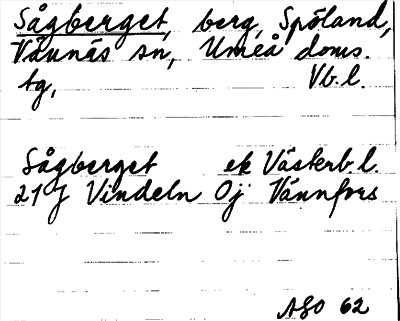 Sågberget, berg, Spöland,
Vännäs sn, Umeå doms.
tg, Vb.l.
Sågberget ek Västerb.l.
21 J Vindeln 0j Vännfors
ASO 62